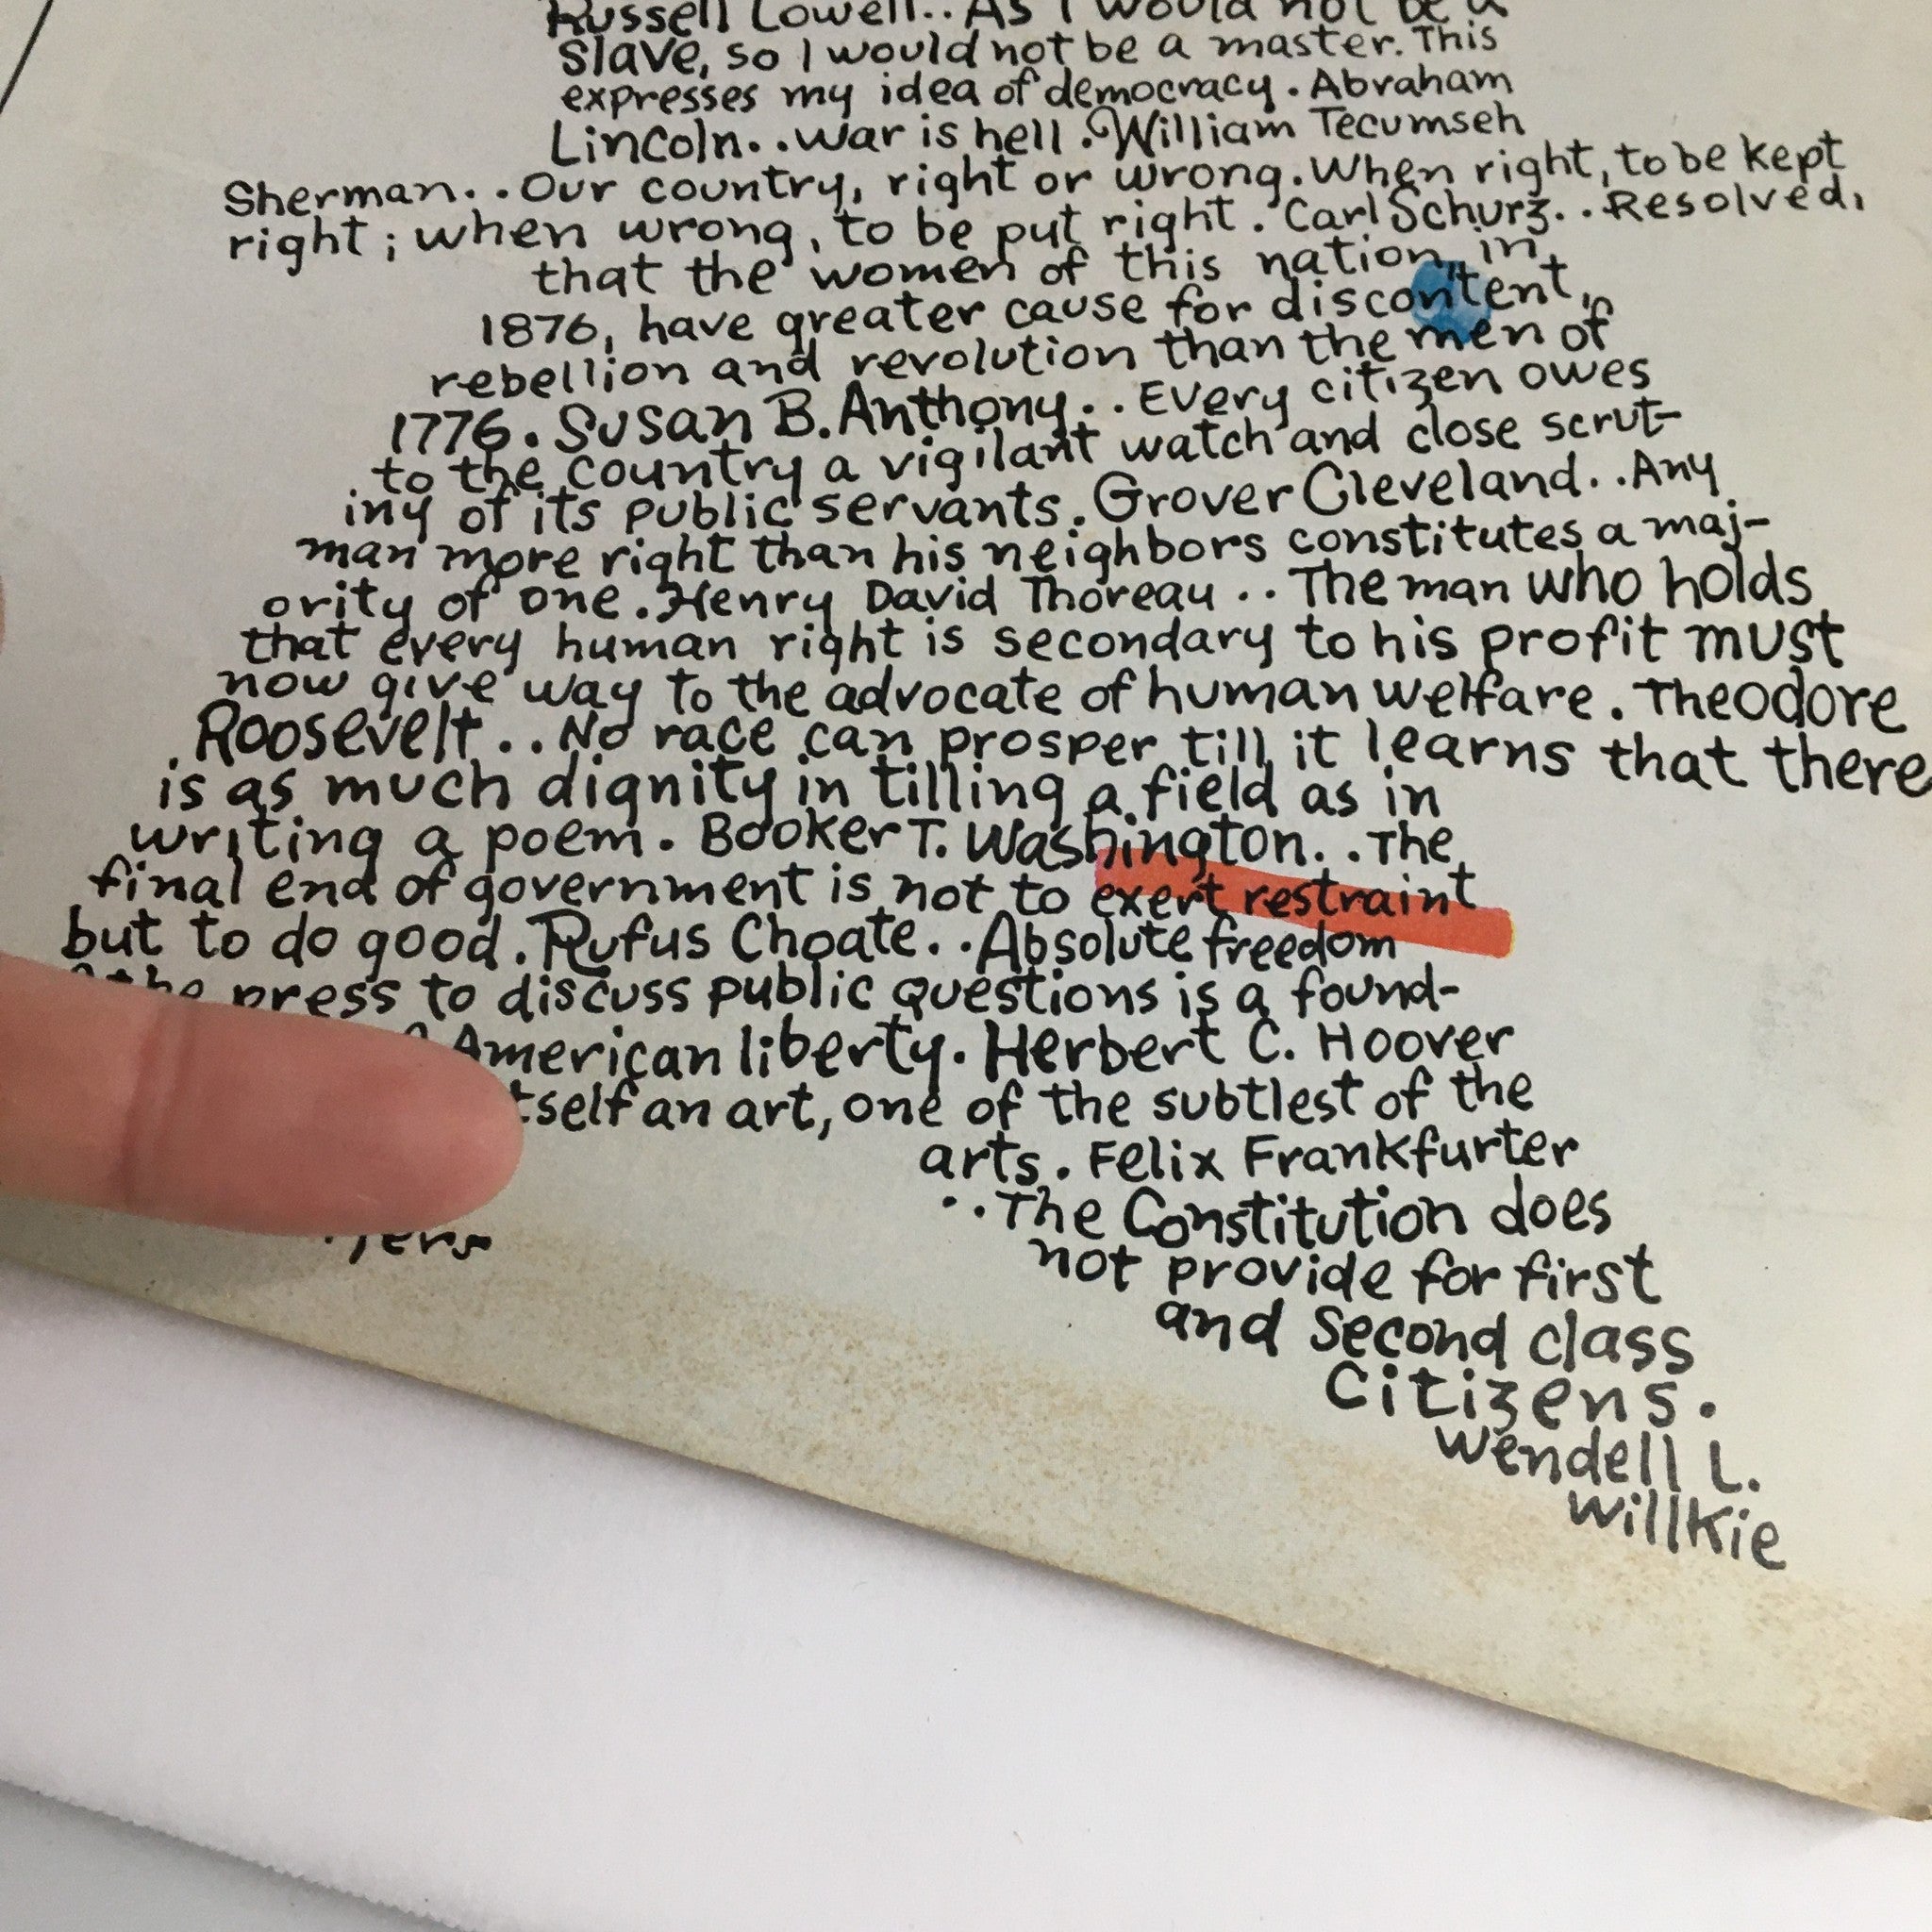 Russell Lowell.. As I would not be a
slave, so I would not be a master. This
expresses my idea of democracy. Abraham
Lincoln.. War is hell. William Tecumseh
Sherman.. Our country, right or wrong. When right, to be kept
right; when wrong, to be put right. Carl Schurz.. Resolved,
that the women of this nation, in
1876, have greater cause for discontent,
rebellion and revolution than the men of
1776. Susan B. Anthony.. Every citizen owes
to the country a vigilant watch and close scrut-
iny of its public servants. Grover Cleveland.. Any
man more right than his neighbors constitutes a maj-
ority of one. Henry David Thoreau.. The man who holds
that every human right is secondary to his profit must
now give way to the advocate of human welfare. Theodore
Roosevelt.. No race can prosper till it learns that there
is as much dignity in tilling a field as in
writing a poem. Booker T. Washington.. The
final end of government is not to exert restraint
but to do good. Rufus Choate.. Absolute freedom
the press to discuss public questions is a found-
American liberty. Herbert C. Hoover
tself an art, one of the subtlest of the
arts. Felix Frankfurter
..The Constitution does
not provide for first
and second class
citizens.
Wendell L.
Willkie